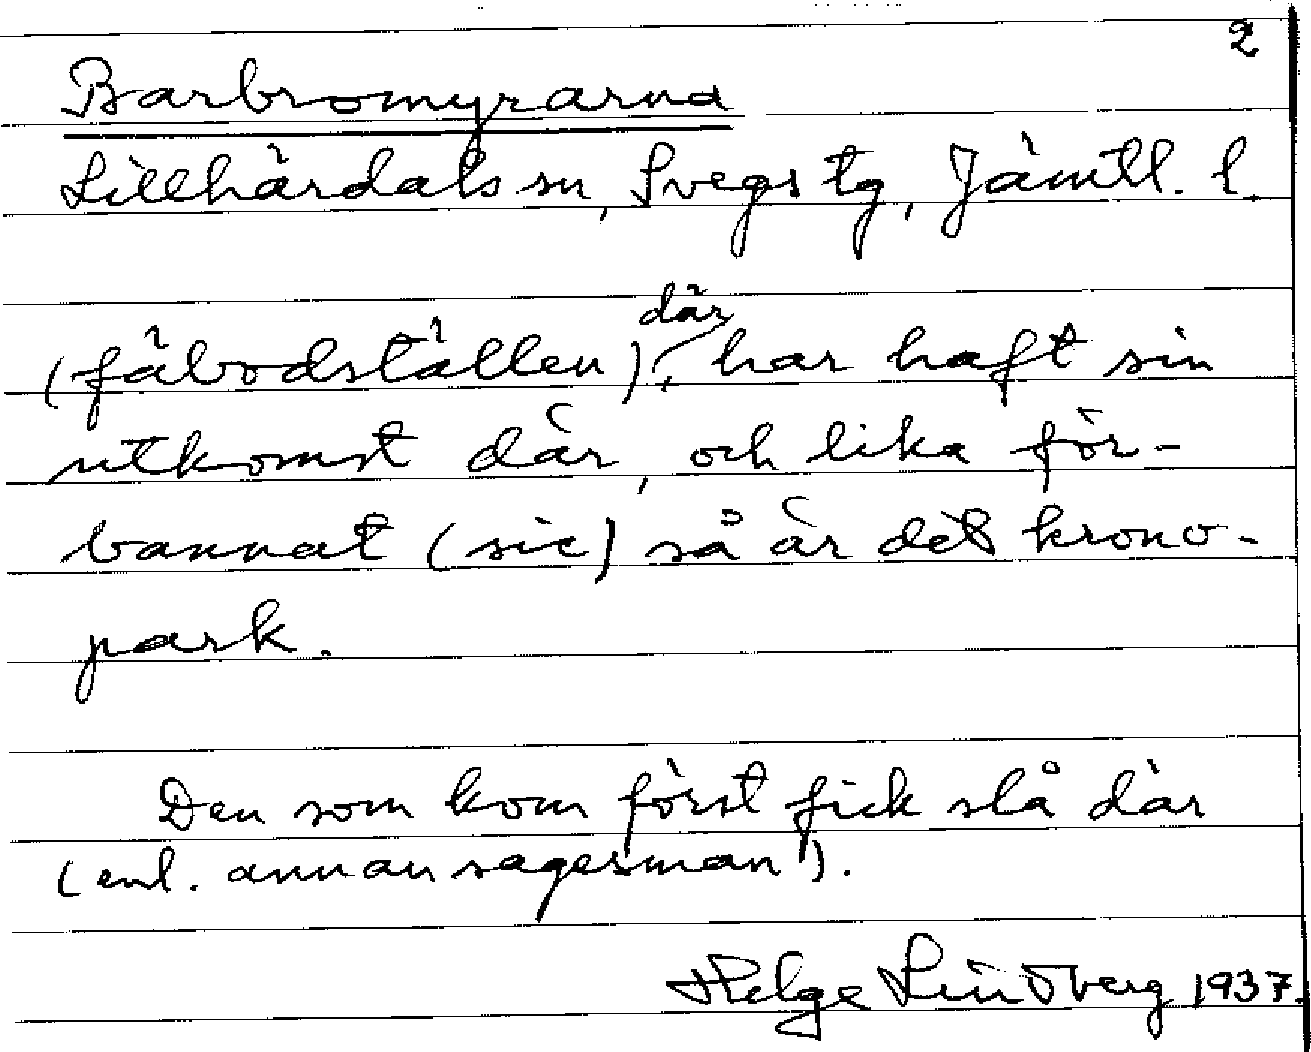 2
Barbromyrarna
Lillhärdals sn, Svegs tg, Jämtl. l.
där
(fäbodställen), har haft sin
utkomst där, och lika för-
bannat (sic) så är det krono-
park.
Den som kom först fick slå där
(enl. annan sagesman).
Helge Lindberg 1937.